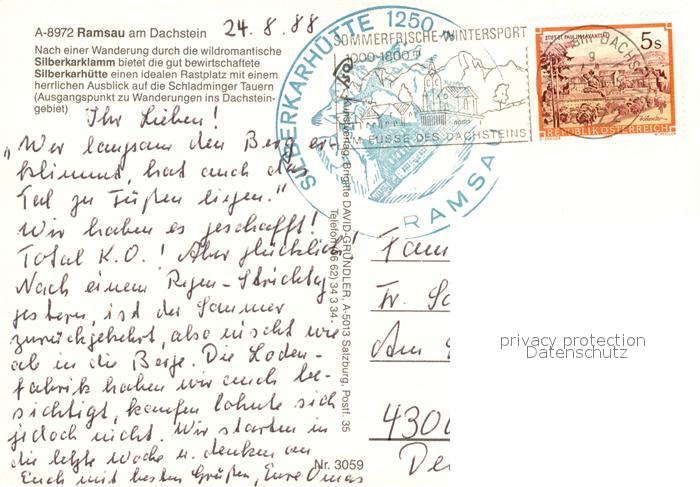 A-8972 Ramsau am Dachstein
24.8.88
Nach einer Wanderung durch die wildromantische
Silberkarklamm bietet die gut bewirtschaftete
Silberkarhütte einen idealen Rastplatz mit einem
herrlichen Ausblick auf die Schladminger Tauern
(Ausgangspunkt zu Wanderungen ins Dachstein-
gebiet)
Ihr Lieben!
„Wer langsam den Berg er-
klimmt, hat auch das
Tal zu Füßen liegen."
Wir haben es geschafft!
Total K.O.! Aber glücklich!
Nach einem Regen-Stricktag
gestern, ist der Sommer
zurückgekehrt, also nischt wie
ab in die Berge. Die Loden-
fabrik haben wir auch be-
sichtigt, kaufen lohnte sich
jedoch nicht. Wir starten in
die letzte Woche u. denken an
Euch mit besten Grüßen, Eure Omas
SILBERKARHÜTTE 1250 m
RAMSAU
SOMMERFRISCHE WINTERSPORT
1000-1800 m
AM FUSSE DES DACHSTEINS
STIFT ST. PAUL IM LAVANTTAL
5s
REPUBLIK ÖSTERREICH
Kunstverlag, Brigitte DAVID-GRÜNDLER, A-5013 Salzburg, Postf. 35
Telefon (06 62) 34 3 34
Nr. 3059
Fam
Fr. Sc
Am
430
De
privacy protection
Datenschutz